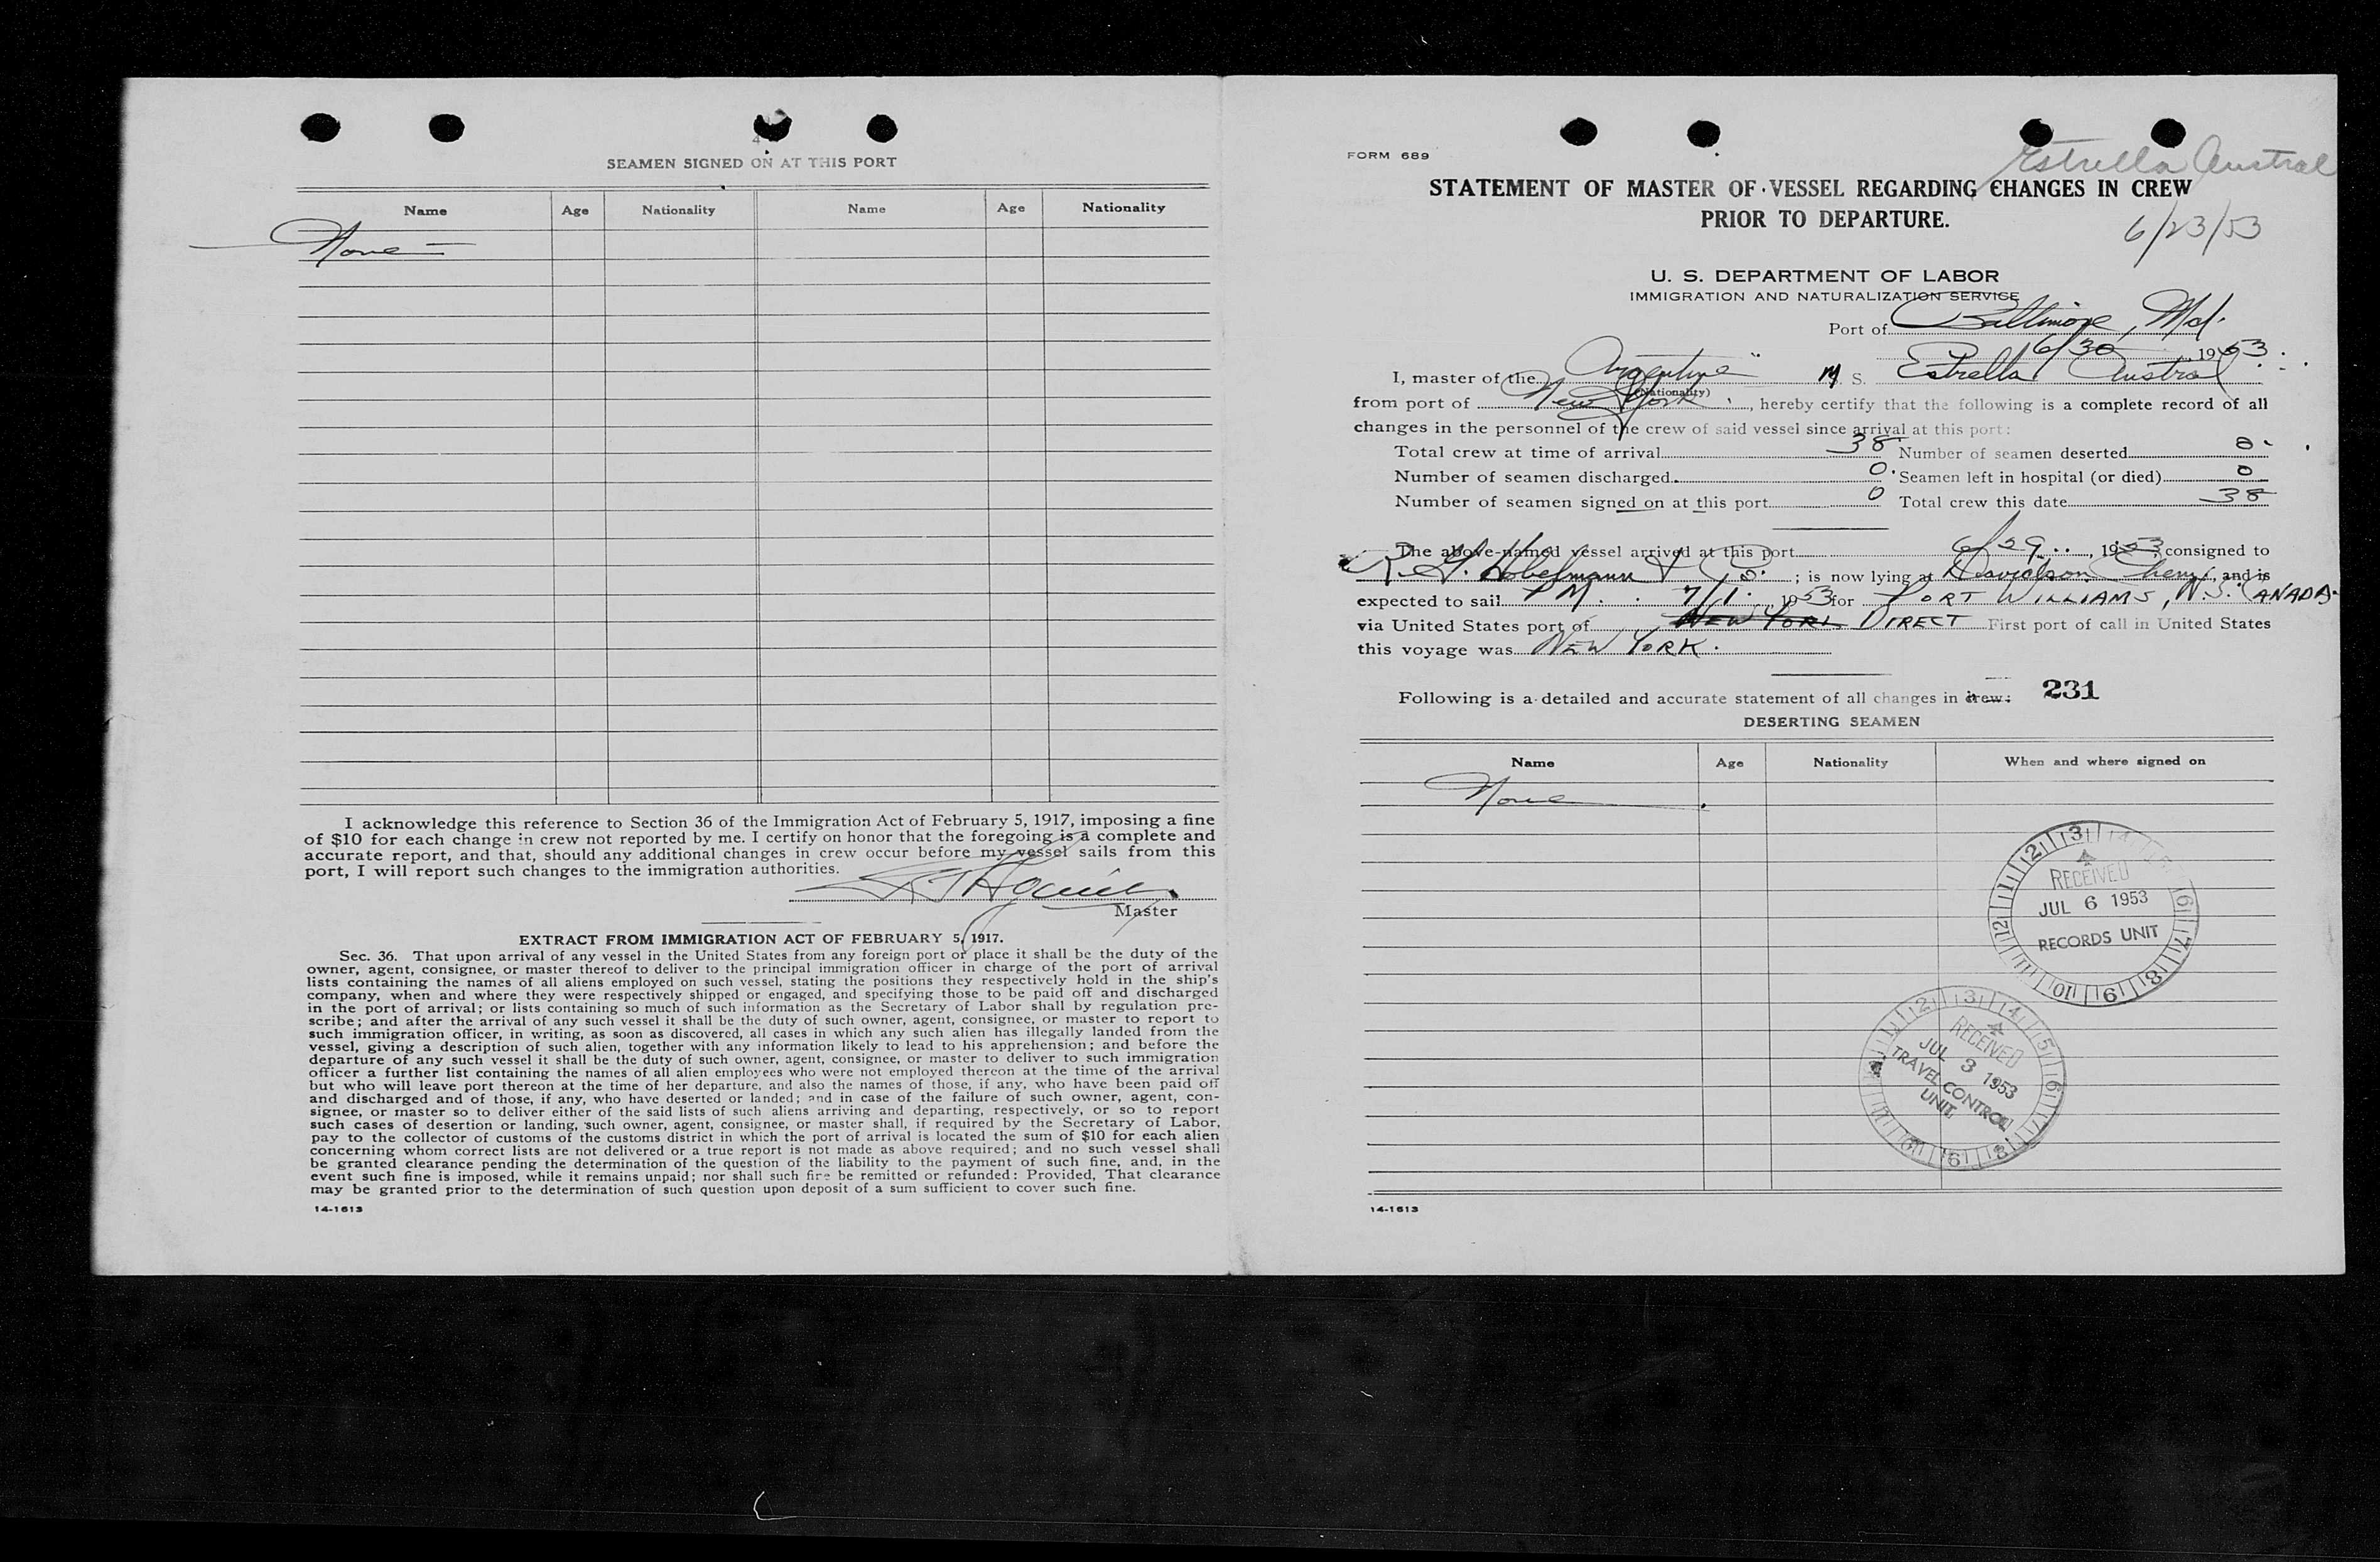 SEAMEN SIGNED ON AT THIS PORT
Name Age Nationality Name Age Nationality
None
I acknowledge this reference to Section 36 of the Immigration Act of February 5, 1917, imposing a fine
of $10 for each change in crew not reported by me. I certify on honor that the foregoing is a complete and
accurate report, and that, should any additional changes in crew occur before my vessel sails from this
port, I will report such changes to the immigration authorities.
Master
EXTRACT FROM IMMIGRATION ACT OF FEBRUARY 5, 1917.
Sec. 36. That upon arrival of any vessel in the United States from any foreign port or place it shall be the duty of the
owner, agent, consignee, or master thereof to deliver to the principal immigration officer in charge of the port of arrival
lists containing the names of all aliens employed on such vessel, stating the positions they respectively hold in the ship's
company, when and where they were respectively shipped or engaged, and specifying those to be paid off and discharged
in the port of arrival; or lists containing so much of such information as the Secretary of Labor shall by regulation pre-
scribe; and after the arrival of any such vessel it shall be the duty of such owner, agent, consignee, or master to report to
such immigration officer, in writing, as soon as discovered, all cases in which any such alien has illegally landed from the
vessel, giving a description of such alien, together with any information likely to lead to his apprehension; and before the
departure of any such vessel it shall be the duty of such owner, agent, consignee, or master to deliver to such immigration
officer a further list containing the names of all alien employees who were not employed thereon at the time of the arrival
but who will leave port thereon at the time of her departure, and also the names of those, if any, who have been paid off
and discharged and of those, if any, who have deserted or landed; and in case of the failure of such owner, agent, con-
signee, or master so to deliver either of the said lists of such aliens arriving and departing, respectively, or so to report
such cases of desertion or landing, such owner, agent, consignee, or master shall, if required by the Secretary of Labor,
pay to the collector of customs of the customs district in which the port of arrival is located the sum of $10 for each alien
concerning whom correct lists are not delivered or a true report is not made as above required; and no such vessel shall
be granted clearance pending the determination of the question of the liability to the payment of such fine, and, in the
event such fine is imposed, while it remains unpaid; nor shall such fine be remitted or refunded: Provided, That clearance
may be granted prior to the determination of such question upon deposit of a sum sufficient to cover such fine.
14-1613
FORM 689
Estrella Austral
STATEMENT OF MASTER OF VESSEL REGARDING CHANGES IN CREW
PRIOR TO DEPARTURE.
6/23/53
U. S. DEPARTMENT OF LABOR
IMMIGRATION AND NATURALIZATION SERVICE
Port of Baltimore, Md.
6/30, 1953
I, master of the Argentine M. S. Estrella Austral
(Nationality)
from port of New York, hereby certify that the following is a complete record of all
changes in the personnel of the crew of said vessel since arrival at this port:
Total crew at time of arrival 38 Number of seamen deserted 0
Number of seamen discharged 0 Seamen left in hospital (or died) 0
Number of seamen signed on at this port 0 Total crew this date 38
The above-named vessel arrived at this port 6/29, 1953 consigned to
R. G. Hobelmann & Co.; is now lying at Davidson Chem, and is
expected to sail PM. 7/1, 1953 for PORT WILLIAMS, N.S. CANADA
via United States port of NEW YORK DIRECT First port of call in United States
this voyage was NEW YORK.
Following is a detailed and accurate statement of all changes in crew: 231
DESERTING SEAMEN
Name Age Nationality When and where signed on
None
RECEIVED
JUL 6 1953
RECORDS UNIT
RECEIVED
JUL 3 1953
TRAVEL CONTROL
UNIT
14-1613